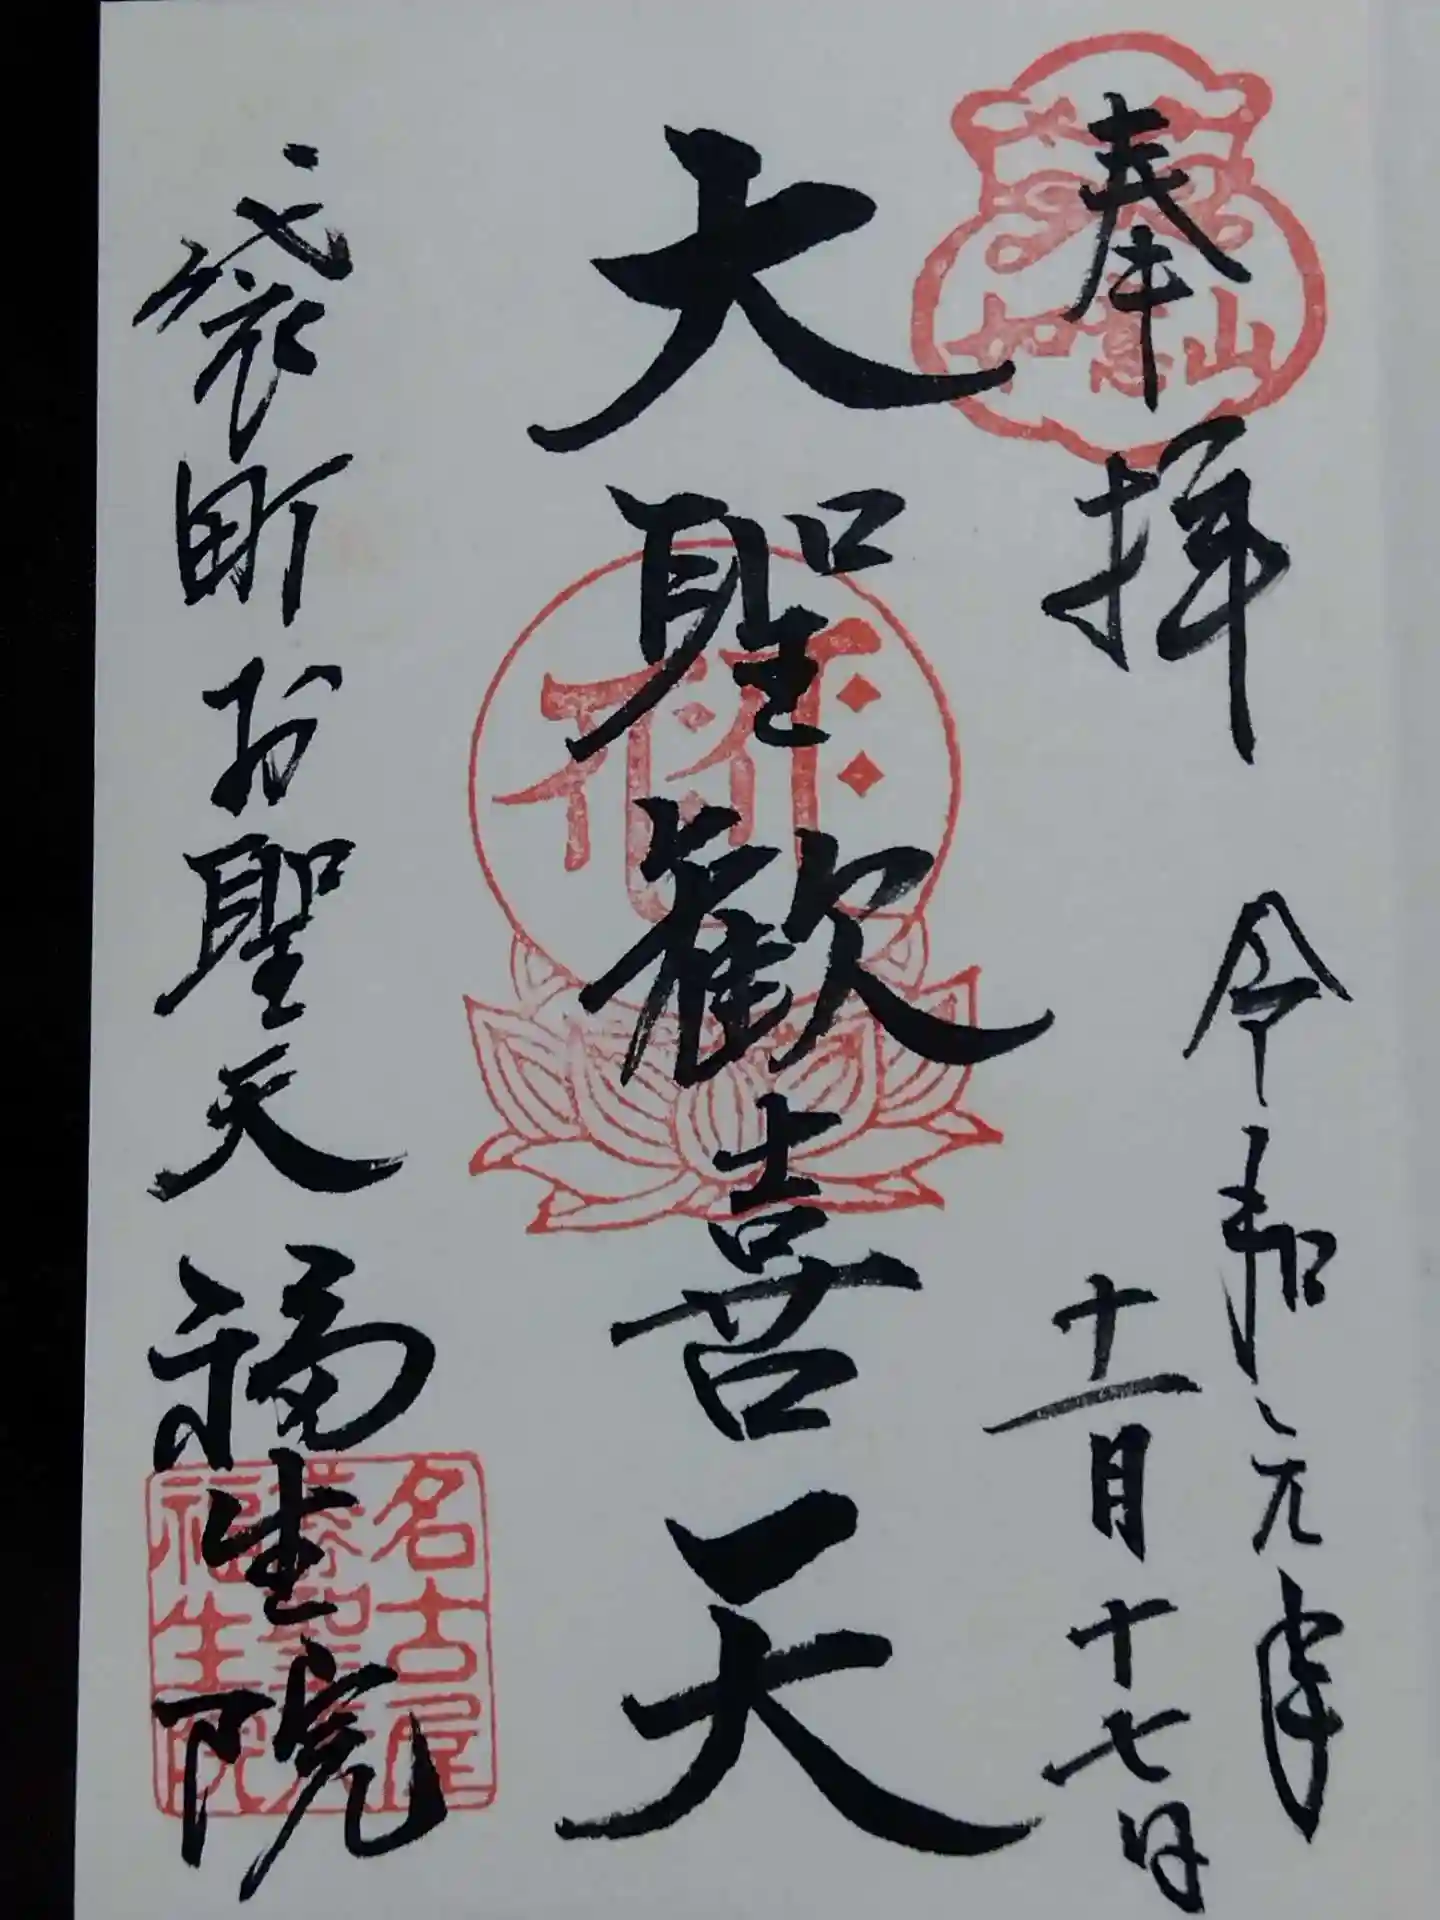 奉拝
令和元年
十一月十七日
如意山
大聖歓喜天
袋町お聖天 福生院
名古屋
福生院